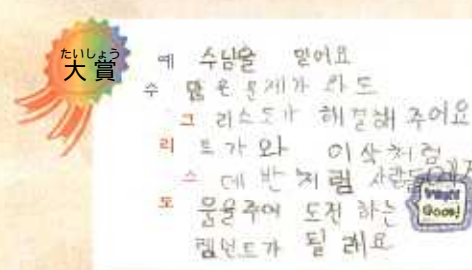 たいしょう
大賞
예 수님을 믿어요
수 많은 문제가 와도
그 리스도가 해결해 주어요
리 브가와 이삭처럼
스 데반처럼
도 움을 주며 도전 하는
될 래요
Good!